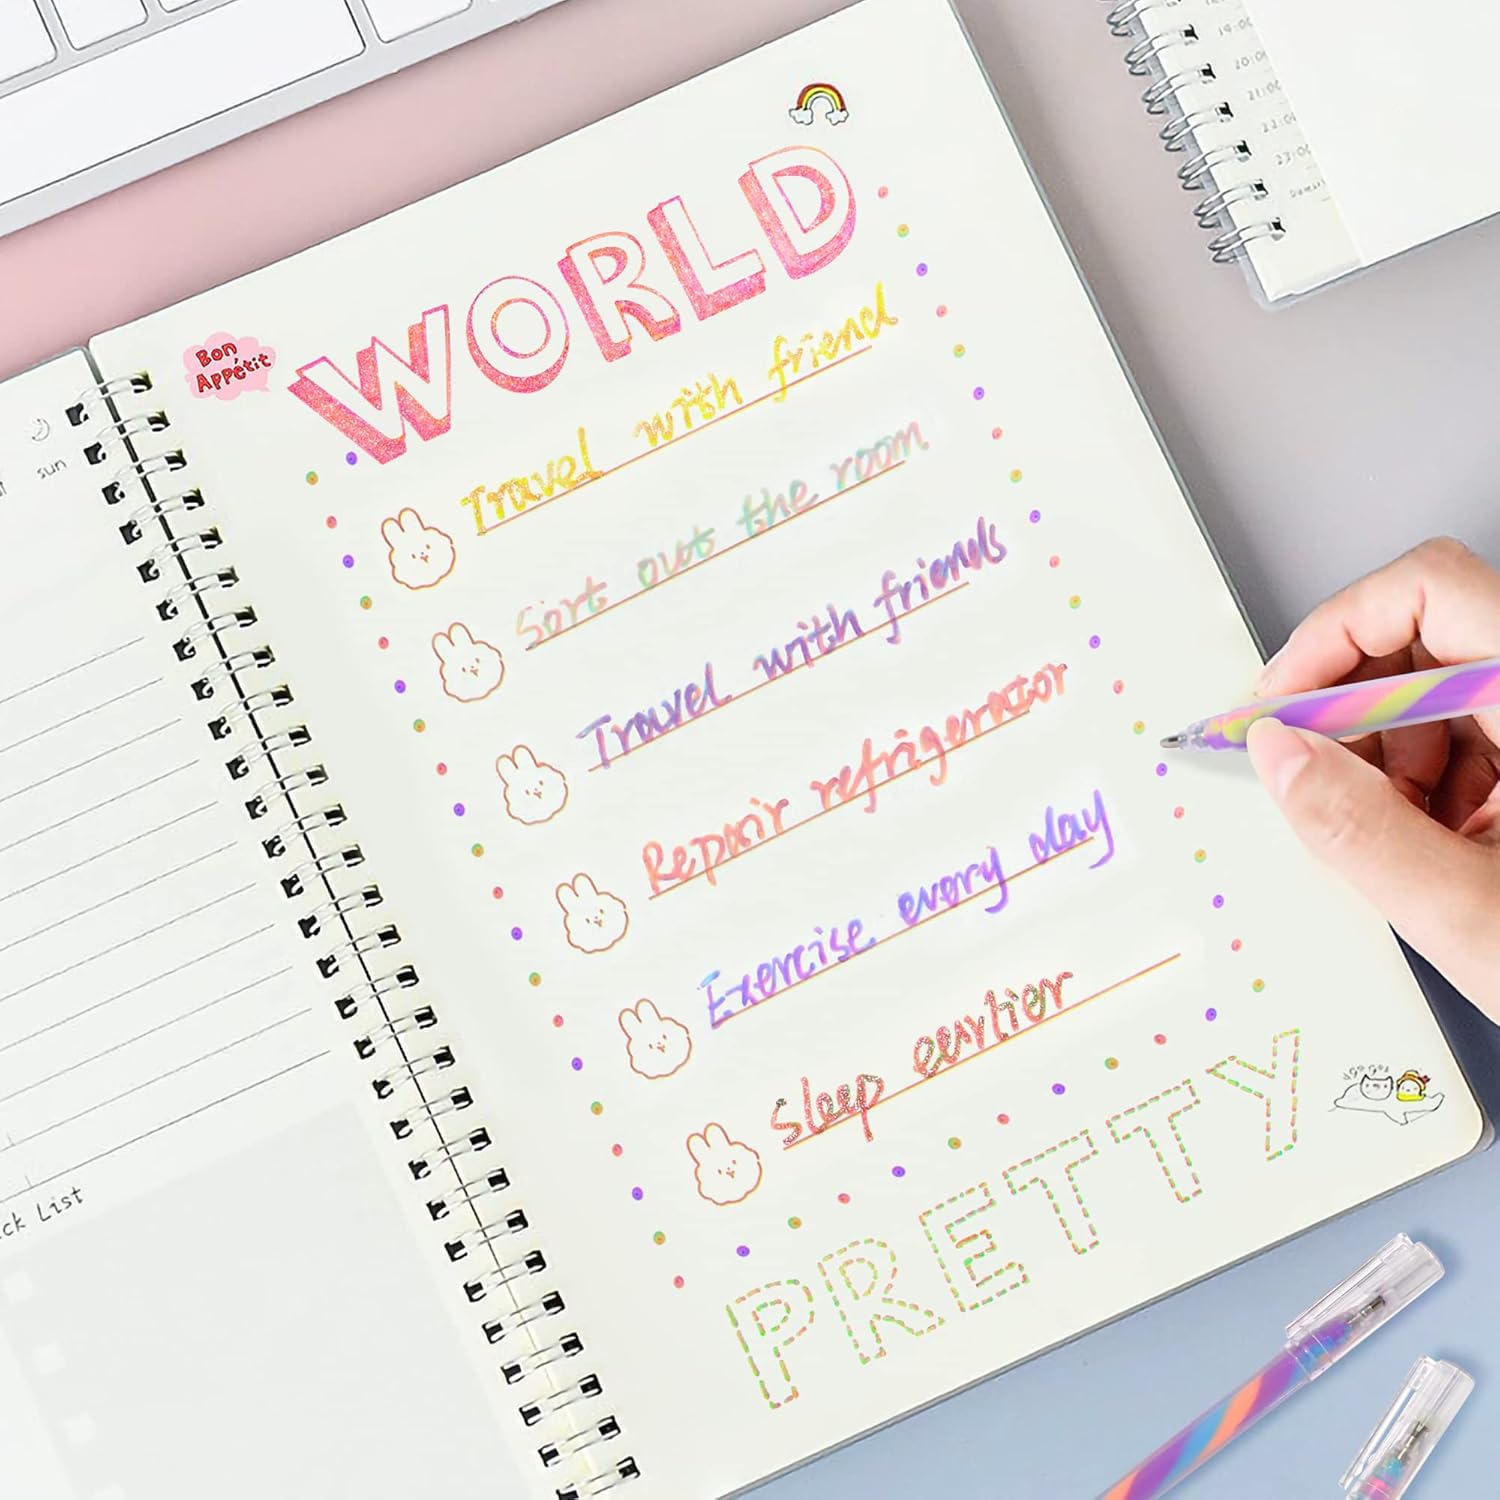 WORLD
Bon
Appétit
Travel with friend
Sort out the room
Travel with friends
Repair refrigerator
Exercise every day
Sleep earlier
PRETTY
sun
ck List
19:00
20:00
21:00
22:00
23:00